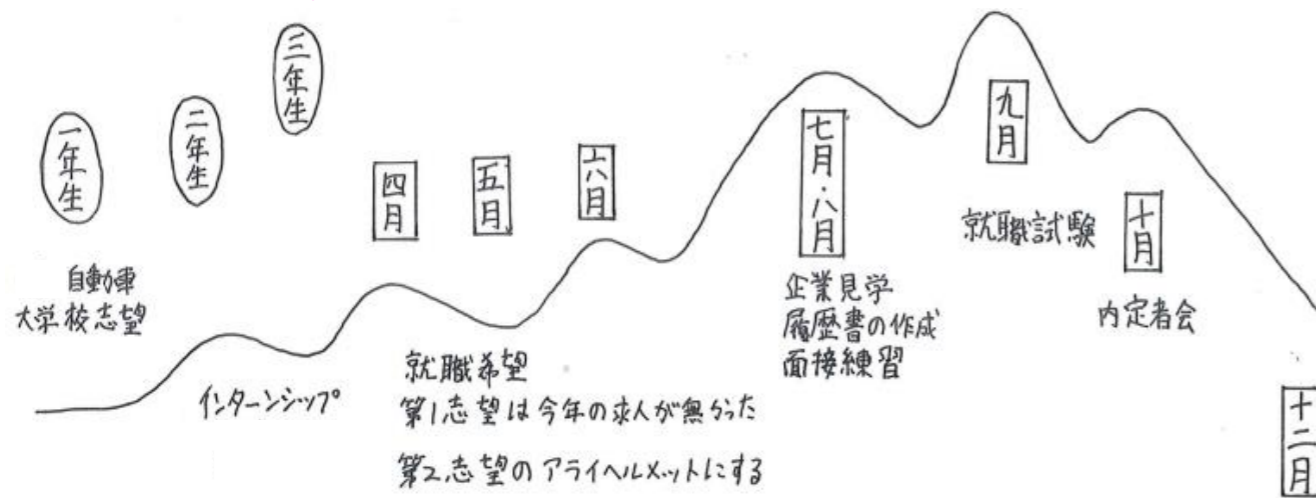 一年生
二年生
三年生
四月
五月
六月
七月・八月
九月
十月
十二月
自動車
大学校志望
インターンシップ
就職希望
第1志望は今年の求人が無かった
第2志望のアライヘルメットにする
企業見学
履歴書の作成
面接練習
就職試験
内定者会